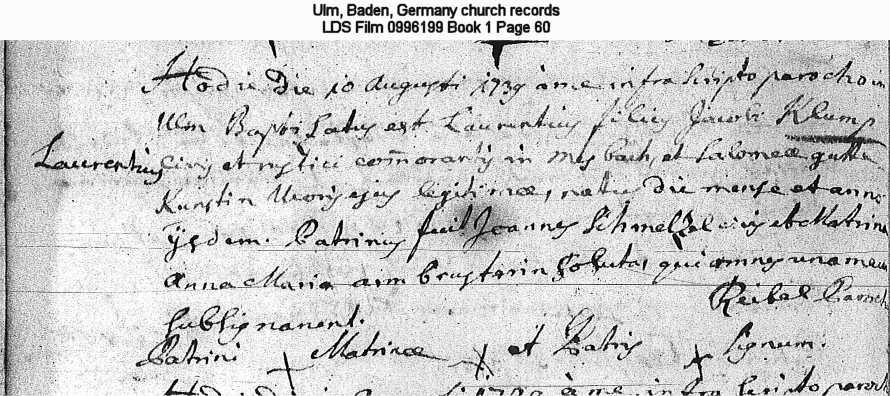 Ulm, Baden, Germany church records
LDS Film 0996199 Book 1 Page 60
Hodie Die 10 Augusti 1739 à me infra scripto parocho in
Ulm Baptisatus est Laurentius filius Jacobi Klump
Laurentius civis et rustici com̃orantis in et Salomeæ
Uxoris ejus legitimæ, natus die mense et anno
ijsdem. Patrinus fuit Joannes Schmelzle civis et Matrina
Anna Maria armbrusterin soluta, qui omnes una mecum
Reibel Paroch
subsignarunt.
Patrini Matrinæ et Patris signum.
à me infra scripto paroch